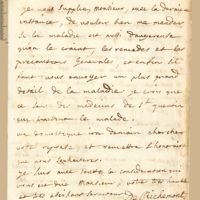 je vous supplie, Monsieur, avec la dernière
instance, de vouloir bien me mander
si la maladie est aussi dangereuse
qu'on le craint, les remedes et les
precautions Generales, et enfin de
vous envoyer un plus grand
detail de la maladie, je crois que
ce sont des médecins de St quentin
qui traitent le malade.
un domestique ira demain chercher
votre reponse et remettre l'honoraire
que vous
je suis avec toute la consideration
Monsieur, votre très humble
et très obéissant serviteur De Richemont